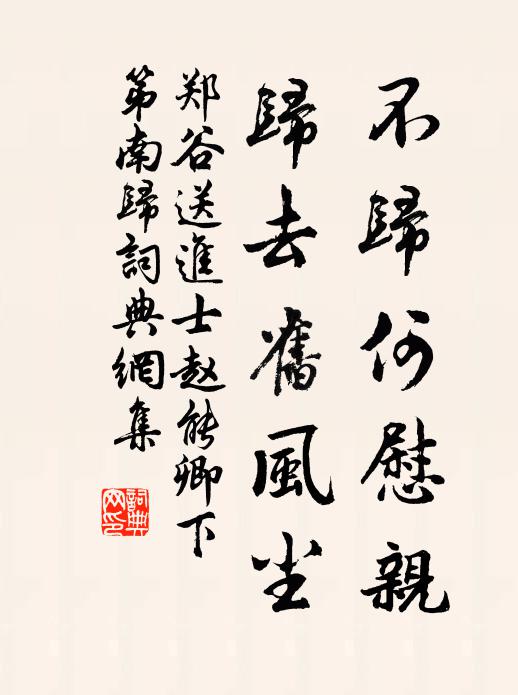 不歸何慰親
歸去舊風尘
郑谷送進士赵能卿下
第南歸詞典網集
詞典网印